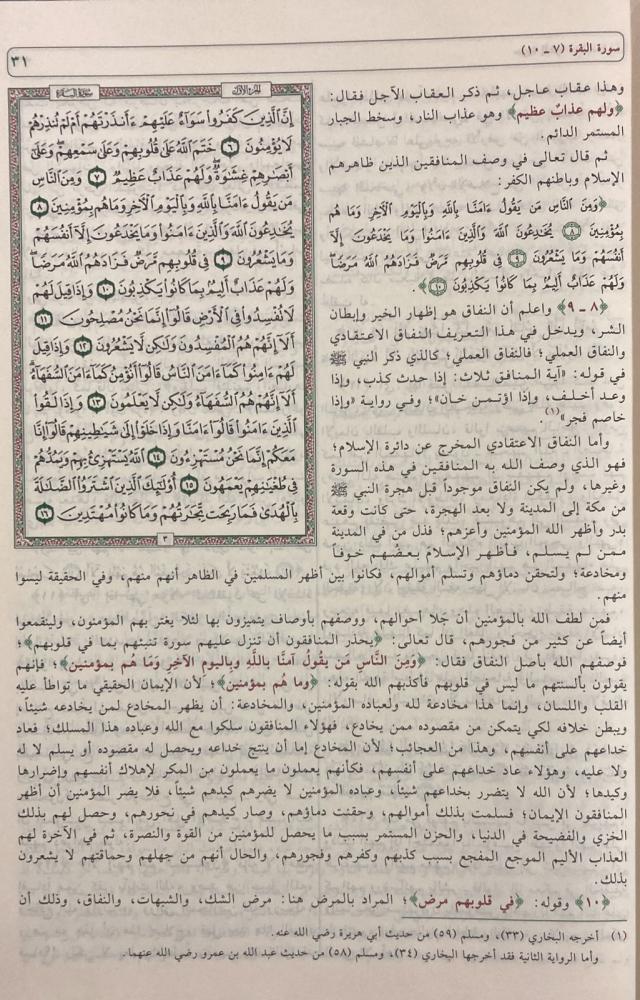 سورة البقرة (٧ ـ ١٠)
٣١
وهذا عقاب عاجل، ثم ذكر العقاب الآجل فقال:
﴿ولهم عذابٌ عظيم﴾ وهو عذاب النار، وسخط الجبار
المستمر الدائم.
ثم قال تعالى في وصف المنافقين الذين ظاهرهم
الإسلام وباطنهم الكفر:
﴿وَمِنَ النَّاسِ مَن يَقُولُ ءَامَنَّا بِاللَّهِ وَبِالْيَوْمِ الْآخِرِ وَمَا هُم
بِمُؤْمِنِينَ ٨ يُخَادِعُونَ اللَّهَ وَالَّذِينَ ءَامَنُوا وَمَا يَخْدَعُونَ إِلَّا
أَنفُسَهُمْ وَمَا يَشْعُرُونَ ٩ فِي قُلُوبِهِم مَّرَضٌ فَزَادَهُمُ اللَّهُ مَرَضًا
وَلَهُمْ عَذَابٌ أَلِيمٌ بِمَا كَانُوا يَكْذِبُونَ ١٠﴾.
﴿٨ ـ ٩﴾ واعلم أن النفاق هو إظهار الخير وإبطان
الشر، ويدخل في هذا التعريف النفاق الاعتقادي
والنفاق العملي؛ فالنفاق العملي؛ كالذي ذكر النبي ﷺ
في قوله: «آية المنافق ثلاث: إذا حدث كذب، وإذا
وعد أخلف، وإذا اؤتمن خان»؛ وفي رواية «وإذا
خاصم فجر»(١).
وأما النفاق الاعتقادي المخرج عن دائرة الإسلام؛
فهو الذي وصف الله به المنافقين في هذه السورة
وغيرها، ولم يكن النفاق موجوداً قبل هجرة النبي ﷺ
من مكة إلى المدينة ولا بعد الهجرة، حتى كانت وقعة
بدر وأظهر الله المؤمنين وأعزهم؛ فذل من في المدينة
ممن لم يسلم، فأظهر الإسلام بعضهم خوفاً
ومخادعة؛ ولتحقن دماؤهم وتسلم أموالهم، فكانوا بين أظهر المسلمين في الظاهر أنهم منهم، وفي الحقيقة ليسوا
منهم.
فمن لطف الله بالمؤمنين أن جَلا أحوالهم، ووصفهم بأوصاف يتميزون بها لئلا يغتر بهم المؤمنون، ولينقمعوا
أيضاً عن كثير من فجورهم، قال تعالى: ﴿يحذر المنافقون أن تنزل عليهم سورة تنبئهم بما في قلوبهم﴾؛
فوصفهم الله بأصل النفاق فقال: ﴿وَمِنَ النَّاسِ مَن يَقُولُ آمَنَّا بِاللَّهِ وباليوم الآخِرِ وَمَا هُم بمؤمنين﴾؛ فإنهم
يقولون بألسنتهم ما ليس في قلوبهم فأكذبهم الله بقوله: ﴿وما هُم بمؤمنين﴾؛ لأن الإيمان الحقيقي ما تواطأ عليه
القلب واللسان، وإنما هذا مخادعة لله ولعباده المؤمنين، والمخادعة: أن يظهر المخادع لمن يخادعه شيئاً،
ويبطن خلافه لكي يتمكن من مقصوده ممن يخادع، فهؤلاء المنافقون سلكوا مع الله وعباده هذا المسلك؛ فعاد
خداعهم على أنفسهم، وهذا من العجائب؛ لأن المخادع إما أن ينتج خداعه ويحصل له مقصوده أو يسلم لا له
ولا عليه، وهؤلاء عاد خداعهم على أنفسهم، فكأنهم يعملون ما يعملون من المكر لإهلاك أنفسهم وإضرارها
وكيدها؛ لأن الله لا يتضرر بخداعهم شيئاً، وعباده المؤمنين لا يضرهم كيدهم شيئاً، فلا يضر المؤمنين أن أظهر
المنافقون الإيمان؛ فسلمت بذلك أموالهم، وحقنت دماؤهم، وصار كيدهم في نحورهم، وحصل لهم بذلك
الخزي والفضيحة في الدنيا، والحزن المستمر بسبب ما يحصل للمؤمنين من القوة والنصرة، ثم في الآخرة لهم
العذاب الأليم الموجع المفجع بسبب كذبهم وكفرهم وفجورهم، والحال أنهم من جهلهم وحماقتهم لا يشعرون
بذلك.
﴿١٠﴾ وقوله: ﴿في قلوبهم مرض﴾؛ المراد بالمرض هنا: مرض الشك، والشبهات، والنفاق، وذلك أن
(١) أخرجه البخاري (٣٣)، ومسلم (٥٩) من حديث أبي هريرة رضي الله عنه.
وأما الرواية الثانية فقد أخرجها البخاري (٣٤)، ومسلم (٥٨) من حديث عبد الله بن عمرو رضي الله عنهما.
الجزء الأول
سورة البقرة
إِنَّ الَّذِينَ كَفَرُوا سَوَاءٌ عَلَيْهِمْ ءَأَنذَرْتَهُمْ أَمْ لَمْ تُنذِرْهُمْ
لَا يُؤْمِنُونَ ٦ خَتَمَ اللَّهُ عَلَى قُلُوبِهِمْ وَعَلَى سَمْعِهِمْ وَعَلَى
أَبْصَارِهِمْ غِشَاوَةٌ وَلَهُمْ عَذَابٌ عَظِيمٌ ٧ وَمِنَ النَّاسِ
مَن يَقُولُ ءَامَنَّا بِاللَّهِ وَبِالْيَوْمِ الْآخِرِ وَمَا هُم بِمُؤْمِنِينَ ٨
يُخَادِعُونَ اللَّهَ وَالَّذِينَ ءَامَنُوا وَمَا يَخْدَعُونَ إِلَّا أَنفُسَهُمْ
وَمَا يَشْعُرُونَ ٩ فِي قُلُوبِهِم مَّرَضٌ فَزَادَهُمُ اللَّهُ مَرَضًا
وَلَهُمْ عَذَابٌ أَلِيمٌ بِمَا كَانُوا يَكْذِبُونَ ١٠ وَإِذَا قِيلَ لَهُمْ
لَا تُفْسِدُوا فِي الْأَرْضِ قَالُوا إِنَّمَا نَحْنُ مُصْلِحُونَ ١١
أَلَا إِنَّهُمْ هُمُ الْمُفْسِدُونَ وَلَكِن لَّا يَشْعُرُونَ ١٢ وَإِذَا قِيلَ
لَهُمْ ءَامِنُوا كَمَا ءَامَنَ النَّاسُ قَالُوا أَنُؤْمِنُ كَمَا ءَامَنَ السُّفَهَاءُ
أَلَا إِنَّهُمْ هُمُ السُّفَهَاءُ وَلَكِن لَّا يَعْلَمُونَ ١٣ وَإِذَا لَقُوا
الَّذِينَ ءَامَنُوا قَالُوا ءَامَنَّا وَإِذَا خَلَوْا إِلَى شَيَاطِينِهِمْ قَالُوا إِنَّا
مَعَكُمْ إِنَّمَا نَحْنُ مُسْتَهْزِءُونَ ١٤ اللَّهُ يَسْتَهْزِئُ بِهِمْ وَيَمُدُّهُمْ
فِي طُغْيَانِهِمْ يَعْمَهُونَ ١٥ أُولَئِكَ الَّذِينَ اشْتَرَوُا الضَّلَالَةَ
بِالْهُدَى فَمَا رَبِحَت تِّجَارَتُهُمْ وَمَا كَانُوا مُهْتَدِينَ ١٦
٣